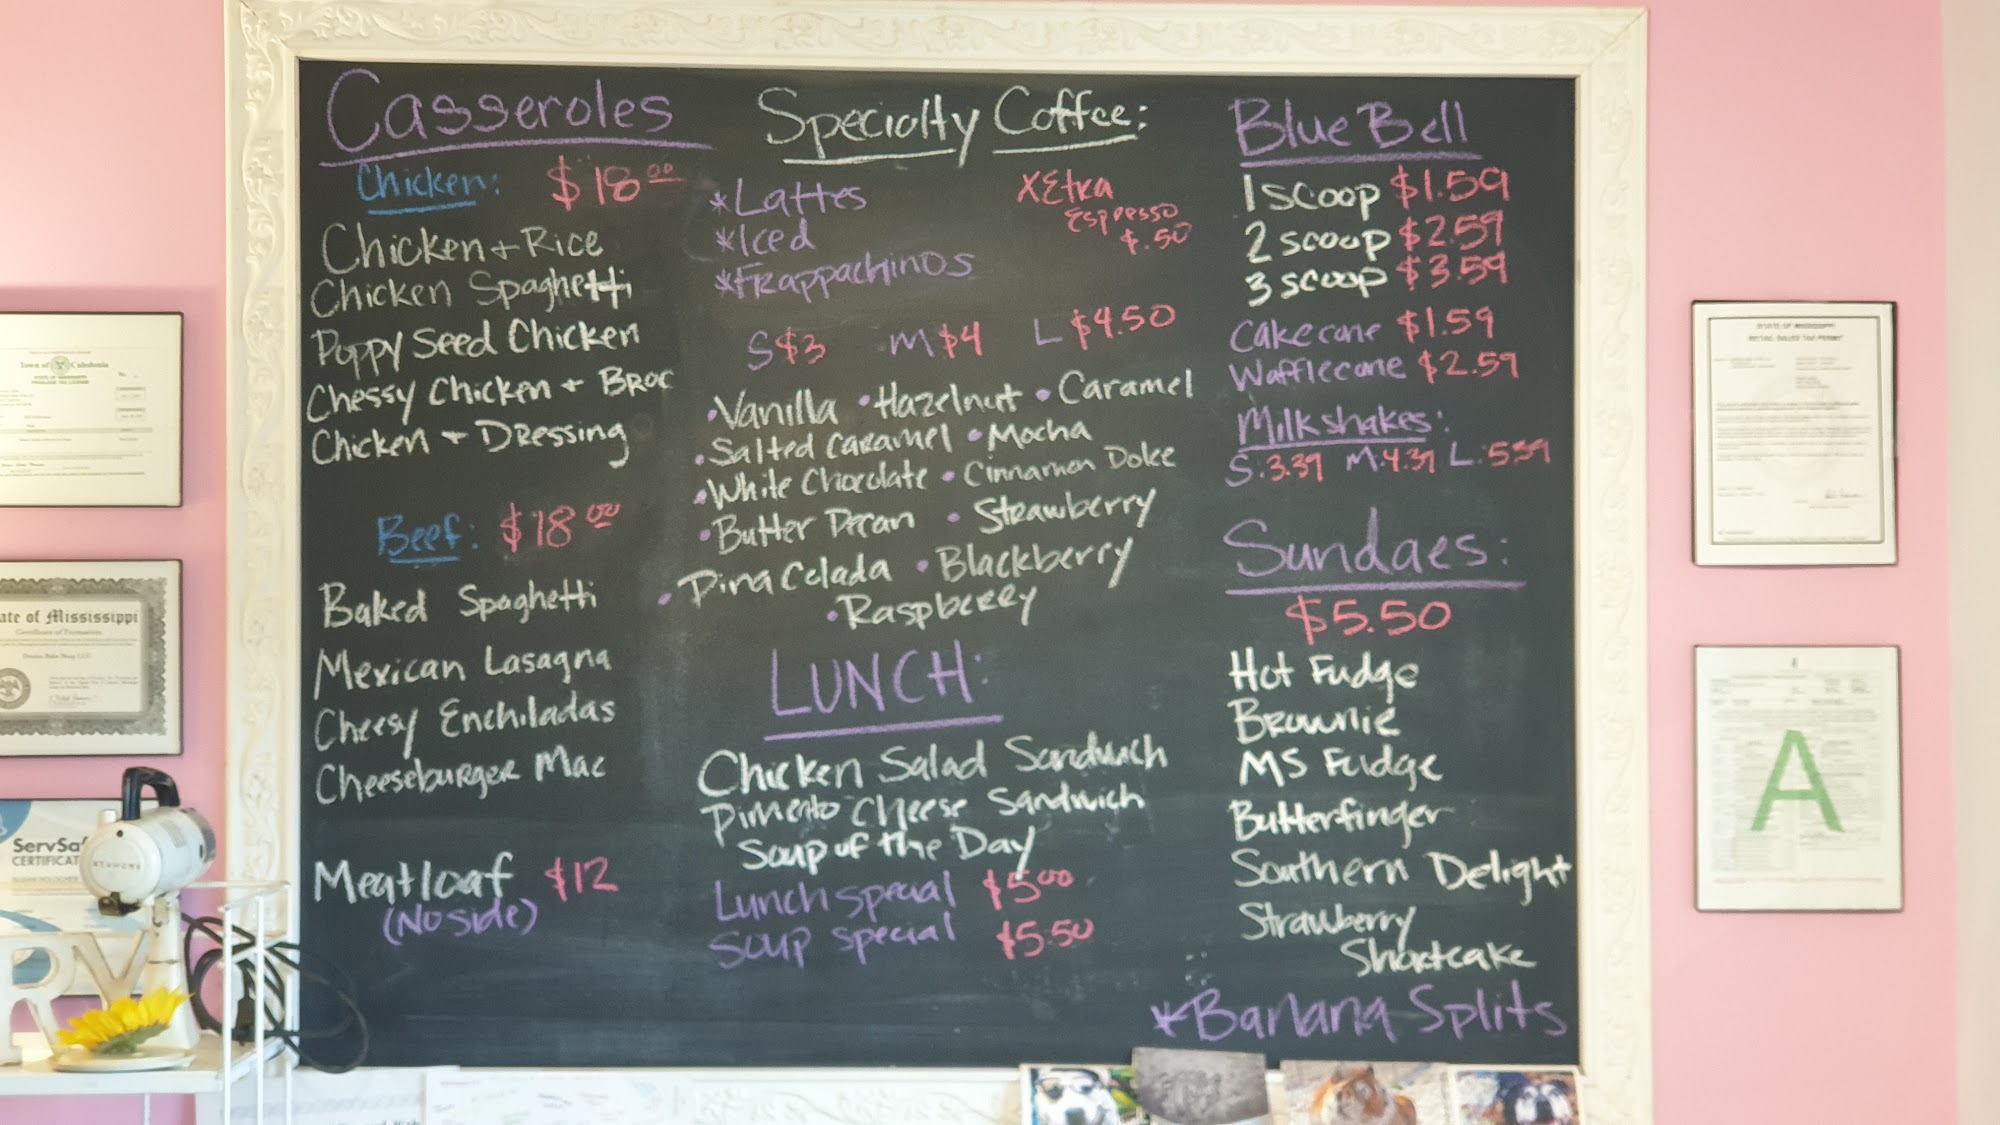 Casseroles
Chicken: $18.00
Chicken + Rice
Chicken Spaghetti
Poppy Seed Chicken
Chessy Chicken + Broc
Chicken + Dressing
Beef: $18.00
Baked Spaghetti
Mexican Lasagna
Cheesy Enchiladas
Cheeseburger Mac
Meatloaf $12
(No side)
Specialty Coffee:
*Lattes
*Iced
*Frappachinos
XEtra
Espresso
$.50
S $3 M $4 L $4.50
•Vanilla •Hazelnut •Caramel
•Salted Caramel •Mocha
•White Chocolate •Cinnamon Dolce
•Butter Pecan •Strawberry
•Pina Colada •Blackberry
•Raspberry
LUNCH:
Chicken Salad Sandwich
Pimento Cheese Sandwich
Soup of the Day
Lunch special $5.00
Soup special $5.50
Blue Bell
1 scoop $1.59
2 scoop $2.59
3 scoop $3.59
Cake cone $1.59
Waffle cone $2.59
Milkshakes:
S: 3.39 M: 4.39 L: 5.39
Sundaes:
$5.50
Hot Fudge
Brownie
MS Fudge
Butterfinger
Southern Delight
Strawberry
Shortcake
*Banana Splits
Town of Caledonia
ate of Mississippi
Certificate of Formation
ServSa
CERTIFICAT
RY
STATE OF MISSISSIPPI
A